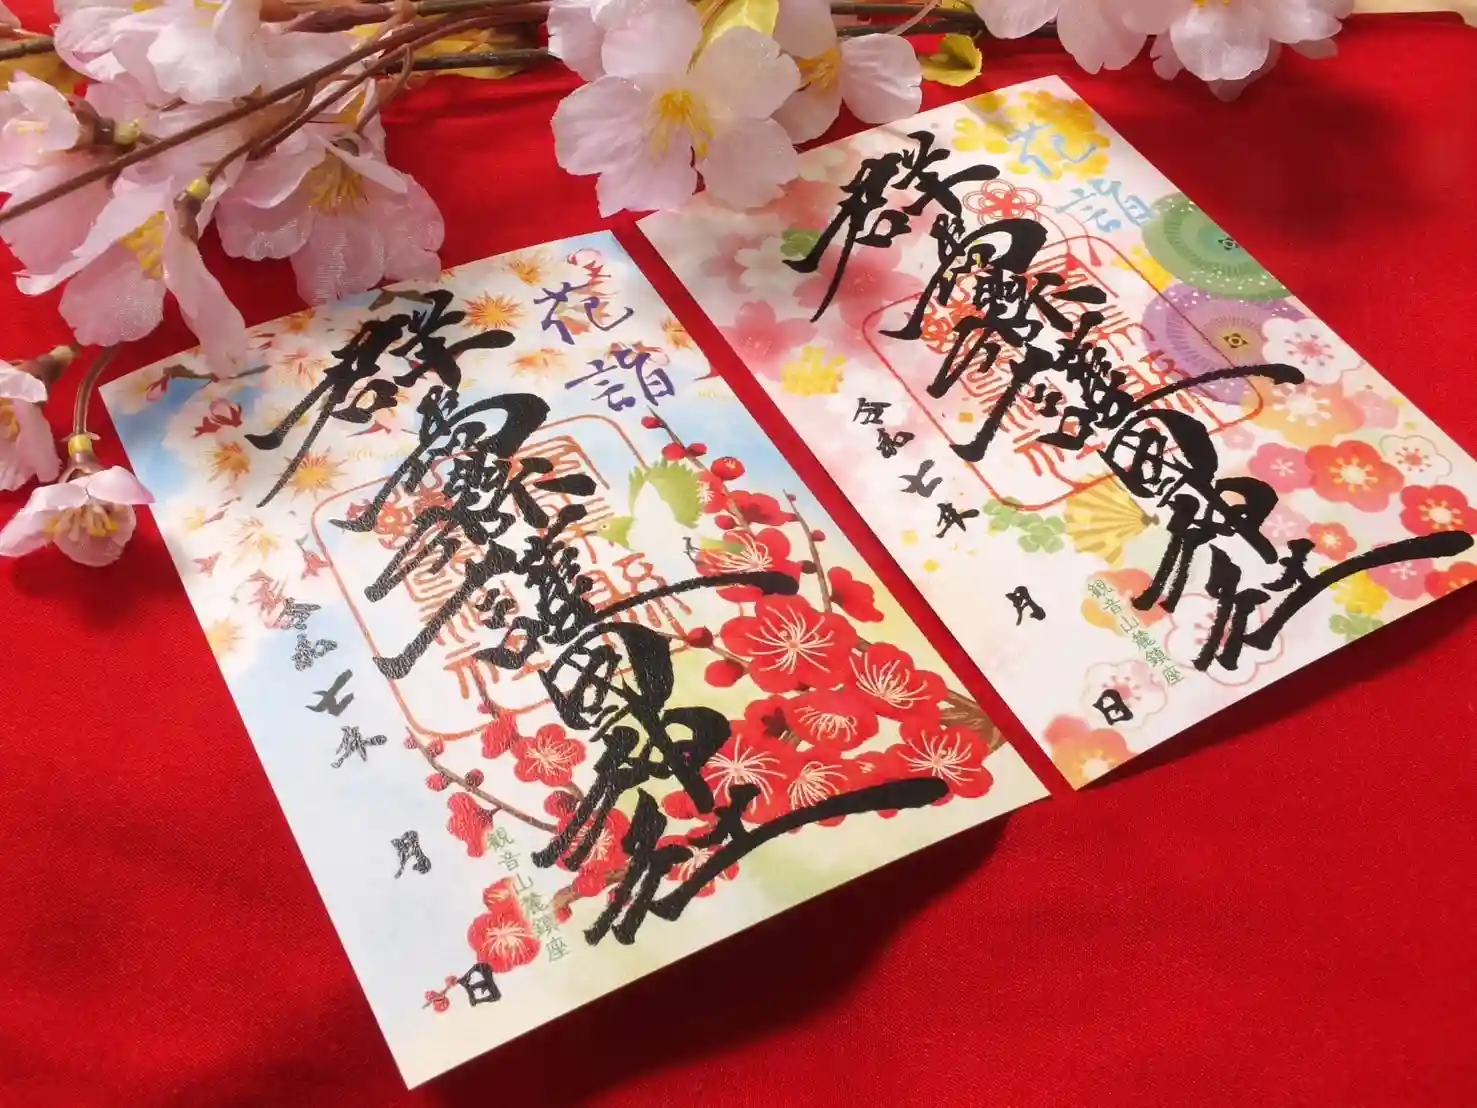 花詣
群馬縣護國神社
令和七年
月
日
観音山麓鎮座
花詣
群馬縣護國神社
令和七年
月
日
観音山麓鎮座